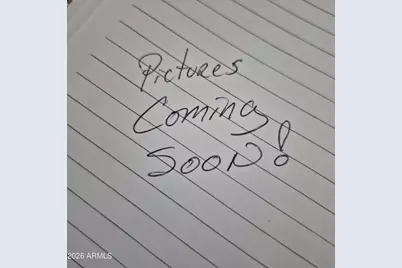 Pictures
Coming
SOON!
2026 ARMLS